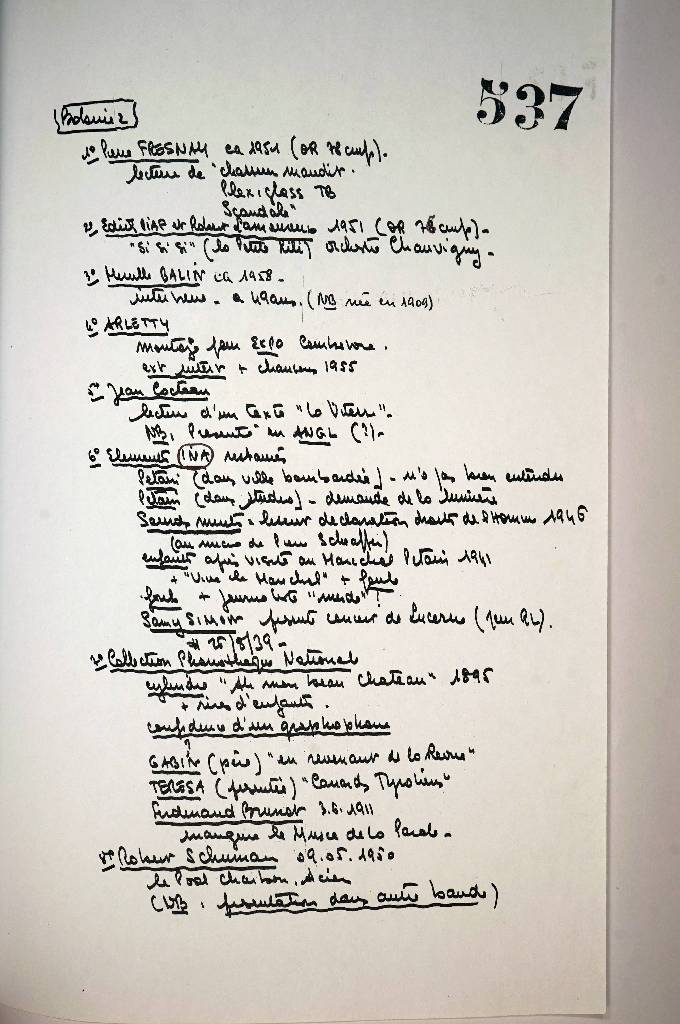 537
Bobine 2
1° Pierre FRESNAY ca 1951 (OR 78 cmp).
lecture de "chasseur maudit.
Plexiglass TB
Scandale"
2° Edith PIAF et Robert Lamoureux 1951 (OR 78 cmp) -
"Si Si Si" (la Petite Lili) orchestre Chauvigny -
3° BALIN ca 1958 -
interview - a 49 ans. (NB née en 1909)
4° ARLETTY
montage pour EXPO
ext interv + chansons 1955
5° Jean Cocteau
lecture d'un texte "La Vitesse" -
NB. Presenté en ANGL (?) -
6° Elements INA restaurés
Petain (dans ville bombardée) - n'a pas bien entendu
Petain (dans studio) - demande de la lumière
Sourds muets = lecture declaration droits de l'Homme 1946
(au micro de Pierre Schaeffer)
enfants après visite au Marechal Petain 1941
+ "Vive le Marechal" + foule
foule + journaliste "merde" !
Samy SIMON presente concert de Lucerne
25/8/39 -
7° Collection Phonothèque Nationale
cylindre "Ah mon beau Chateau" 1895
+ rires d'enfants.
confidence d'un graphophone
?
GABIN (père) "en revenant de la Revue"
TERESA (presentée) "Canards Tyroliens"
Ferdinand Brunot 3.6.1911
inaugure le Musée de la Parole -
8° Robert Schuman 09.05.1950
le Pool Charbon, Acier
(NB : presentation dans autre bande)